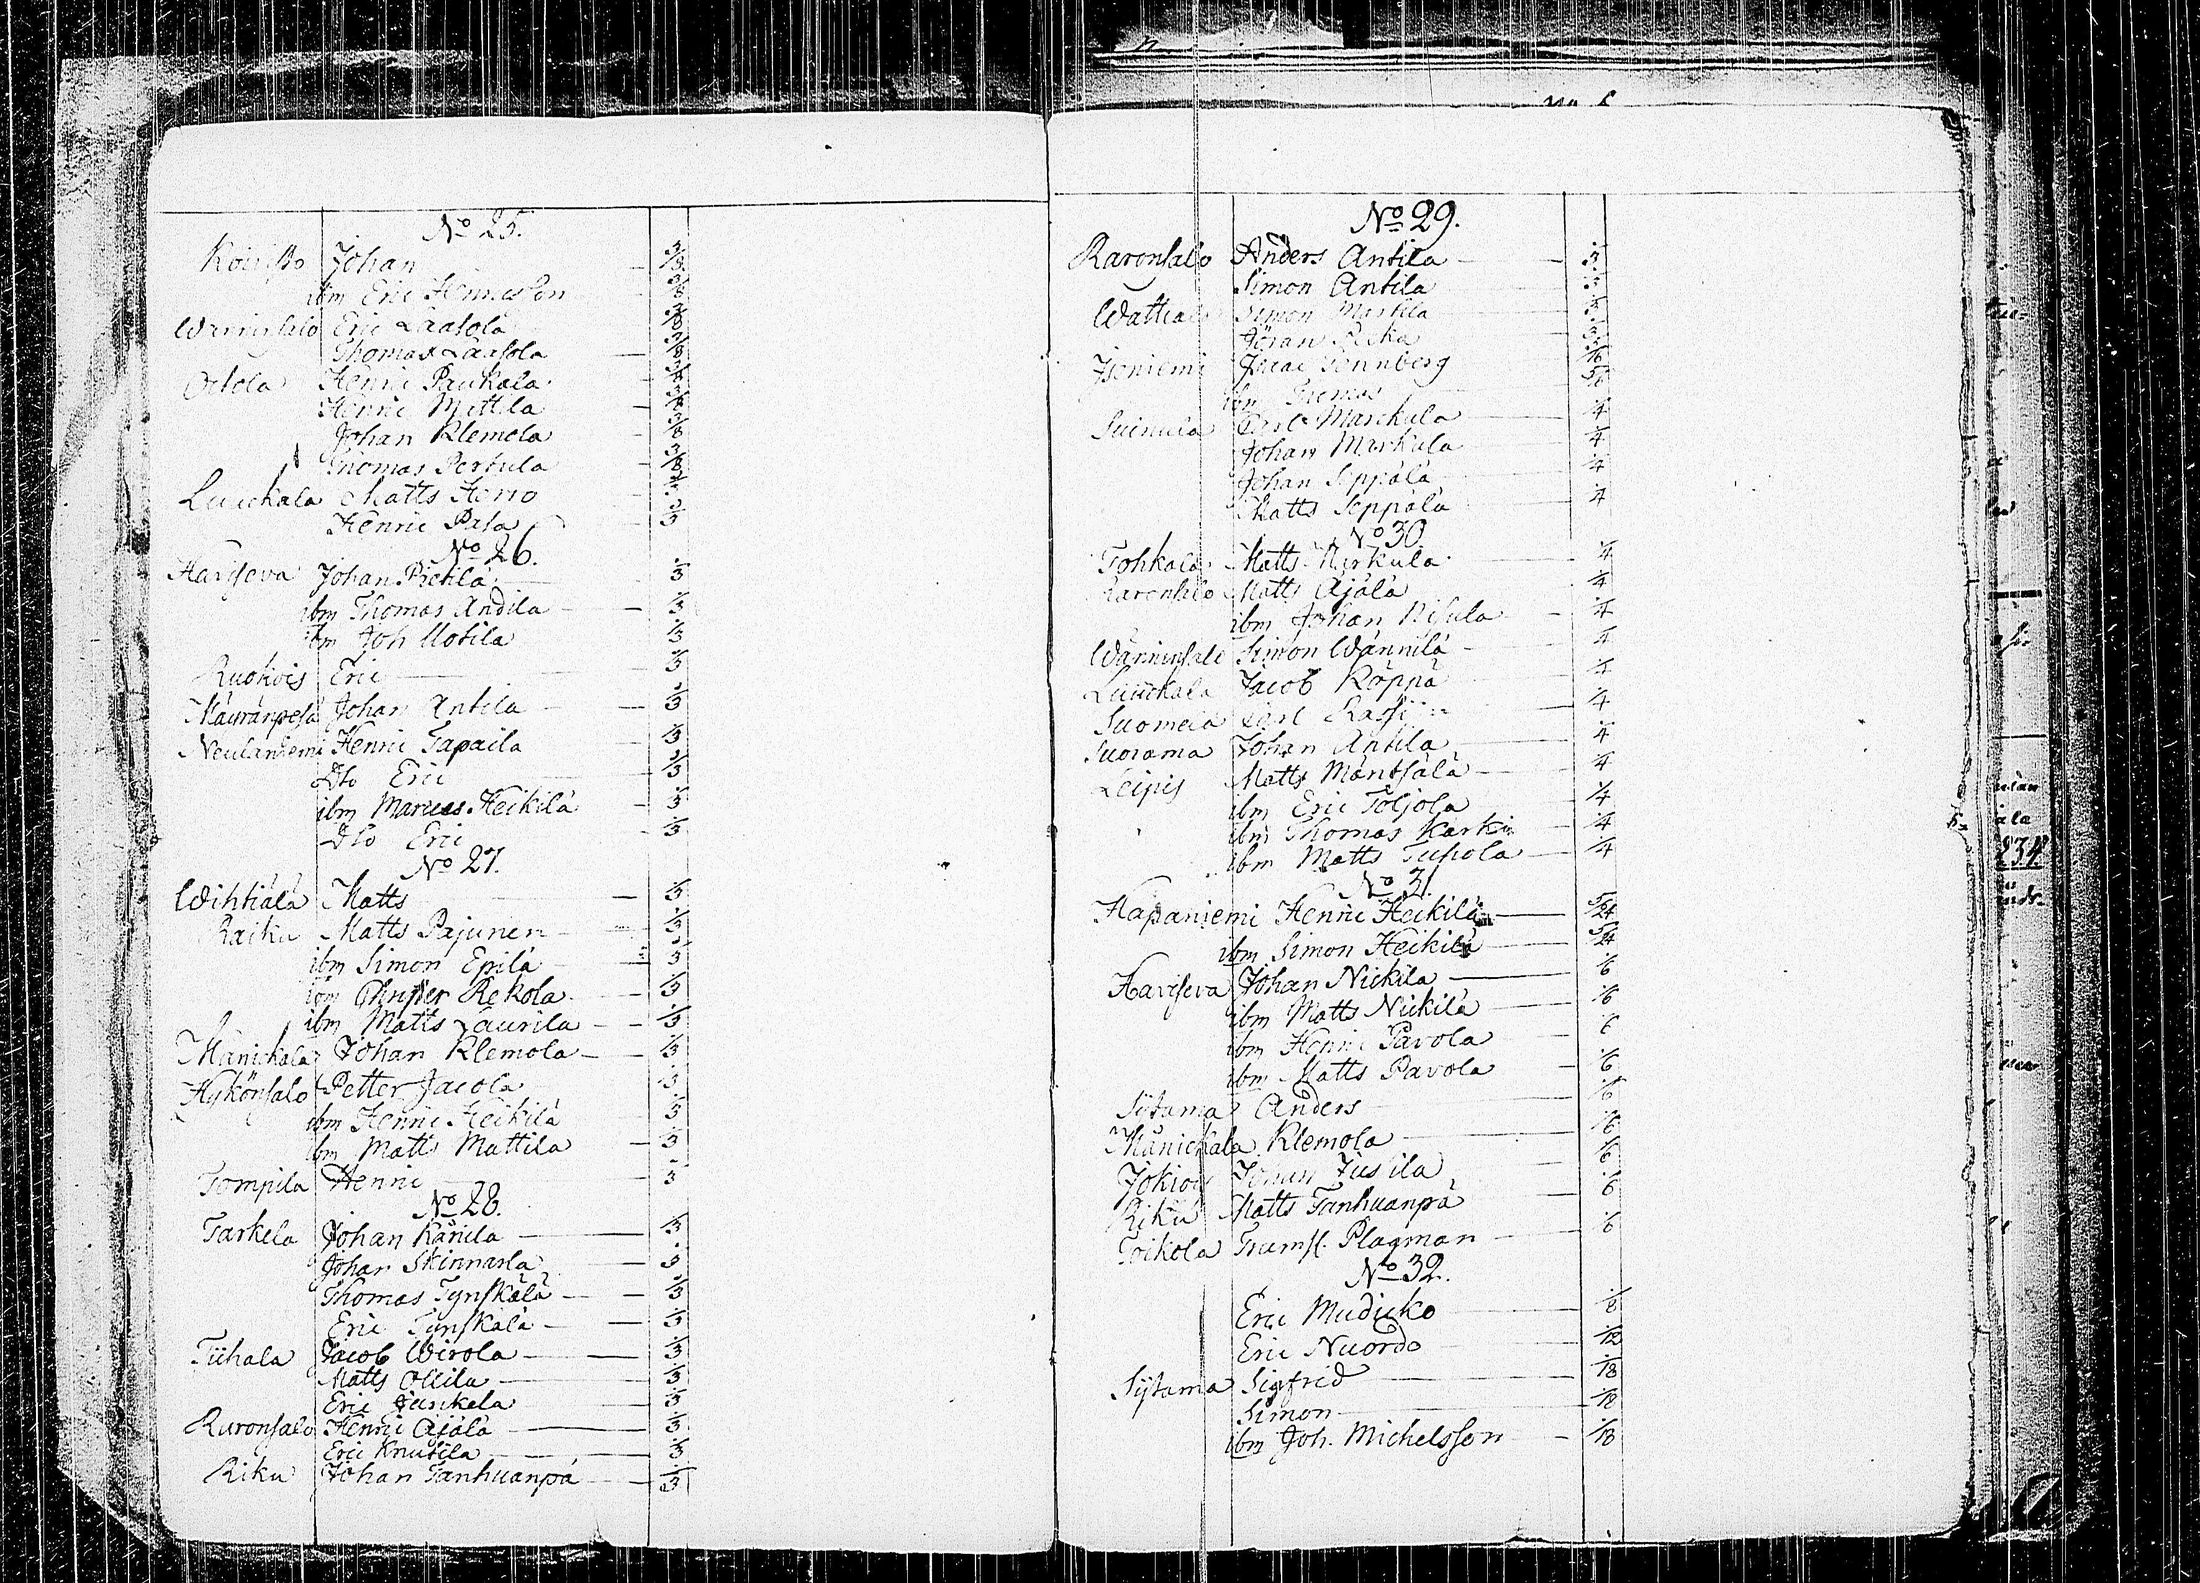 No 25.
Koiusto Johan 3/8
ibm Eric Hennesson 3/8
Wänninsalo Eric Laasola 3/8
Thomas Laasola 3/8
Ortola Henric Paukala 3/8
Henric Mattila 3/8
Johan Klemola 3/8
Thomas Pertula 3/8
Luuckala Matts Hemo
Henric Pasa 1/3
No 26.
Haviseva Johan Pietilä 1/3
ibm Thomas Andila 1/3
ibm Joh Uotila 1/3
Ruokois Eric 1/3
Mäuränpesä Johan Antila 1/3
Neulaniemi Henric Tapaila 1/3
Dto Eric 1/3
ibm Marcus Heikilä 1/3
Dto Eric 1/3
No 27.
Wihtiälä Matts 1/3
Raiku Matts Pajunen 1/3
ibm Simon Epilä 1/3
ibm Christer Rekola 1/3
ibm Matts Laurila 1/3
Mänickala Johan Klemola 1/3
Hykönsalo Petter Jacola 1/3
ibm Henric Heikilä 1/3
ibm Matts Mattila 1/3
Tompila Henric 1/3
No 28.
Tarkela Johan Känela 1/3
Johan Skinnarla 1/3
Thomas Tynskälä 1/3
Eric Tynskälä 1/3
Tiihala Jacob Wirola 1/3
Matts Ollila 1/3
Eric Junkela 1/3
Kuronsalo Henric Äjälä 1/3
Eric Knutila 1/3
Riku Johan Tanhuanpä 1/3
No 29.
Raronsalo Anders Antila
Simon Antila
Wattiala Simon Martila
Jöran
Iseniemi Isaac Tennberg 5/16
ibm Thomas 5/16
Suinula Carl Marckula 1/4
Johan Markula 1/4
Johan Seppälä 1/4
Matts Seppälä 1/4
No 30
Tohkala Matts Kirkula 1/4
Raronsalo Matts Äjälä 1/4
ibm Johan Nisula 1/4
Wänninsalo Simon Wännilä 1/4
Luuckala Jacob Röppä 1/4
Suomela Carl Rassi 1/4
Suorama Johan Antila 1/4
Leipis Matts Mäntsälä 1/4
ibm Eric Toljola 1/4
ibm Thomas Karki 1/4
ibm Matts Tupola 1/4
No 31.
Hapaniemi Henric Heikilä 5/24
ibm Simon Heikilä 5/24
Haviseva Johan Nickila 1/6
ibm Matts Nickilä 1/6
ibm Henric Pavola 1/6
ibm Matts Pavola 1/6
Sijtama Anders 1/6
Mänickala Klemola 1/6
Jokiois Johan Jussila 1/6
Riku Matts Tanhuanpä 1/6
Toikola Trumsl. Plagman 1/6
No 32.
Eric Mudicko 1/8
Eric Nuordo 1/12
Sijtama Sigfrid 1/18
Simon 1/18
ibm Joh. Michelsson 1/18